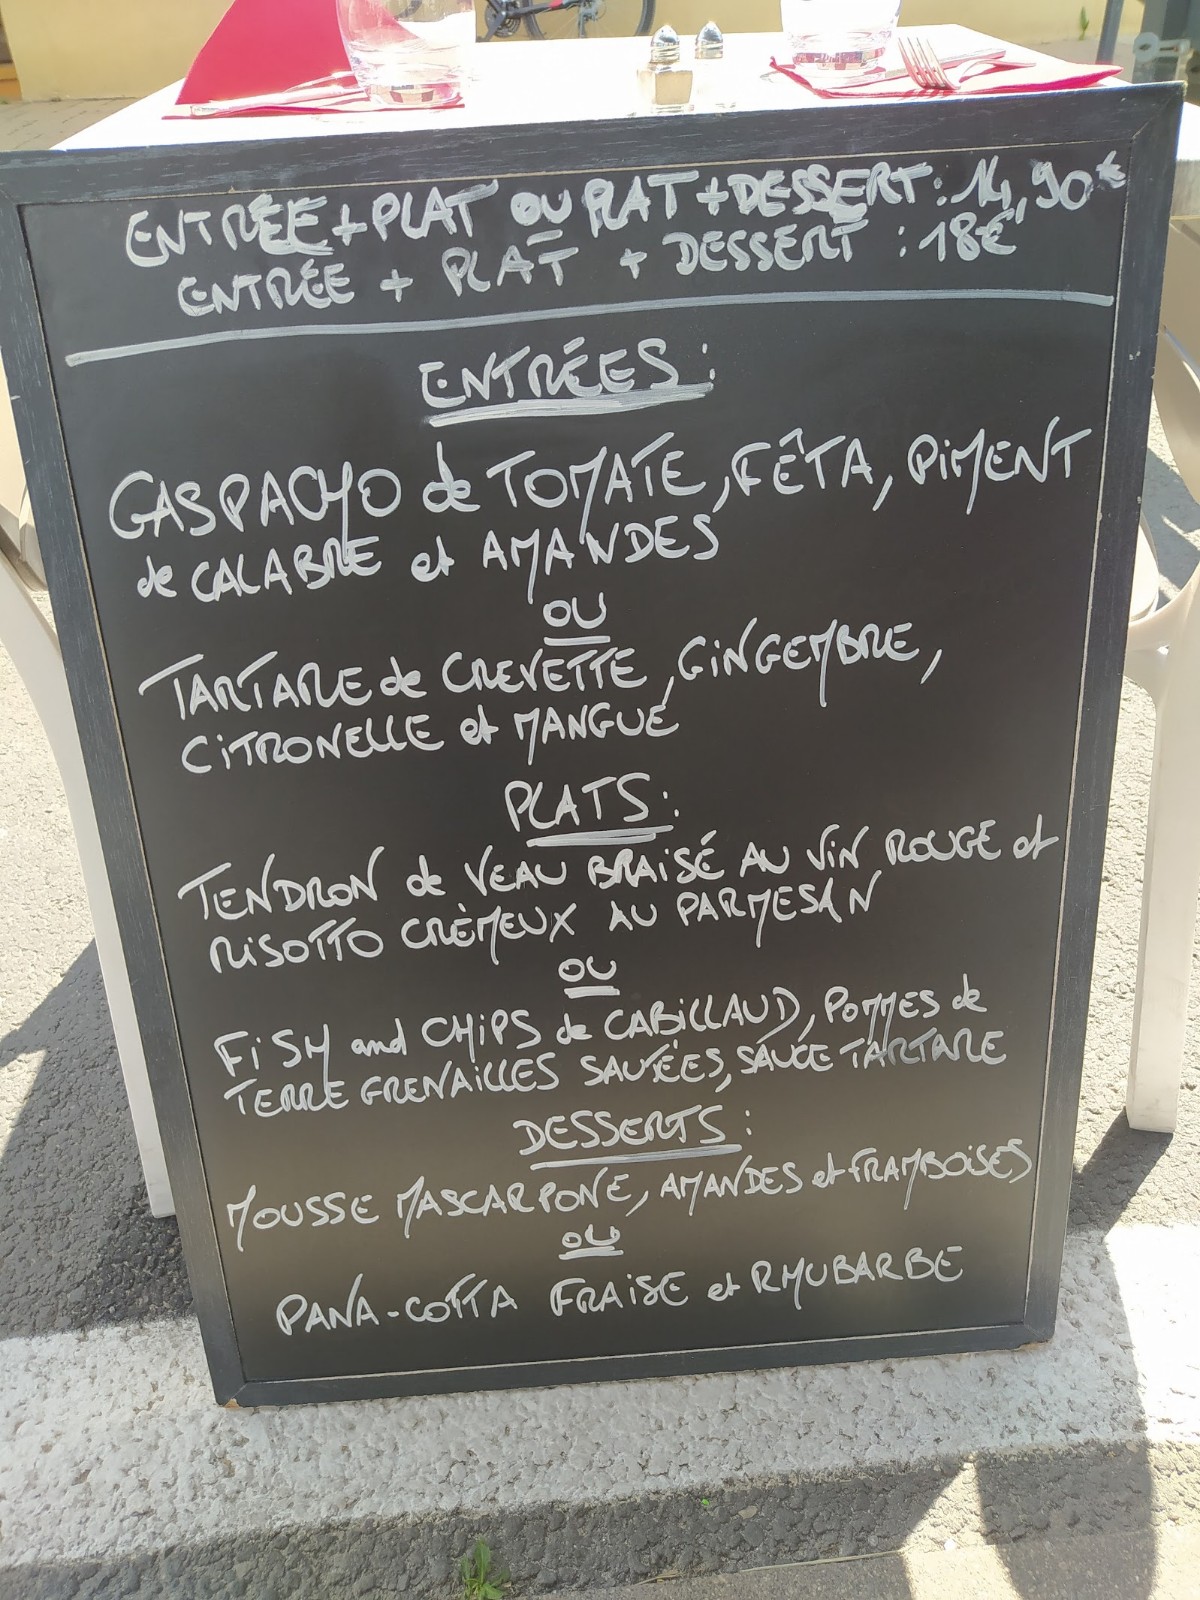 ENTRÉE + PLAT OU PLAT + DESSERT : 14,90€
ENTRÉE + PLAT + DESSERT : 18€
ENTRÉES :
GASPACHO de TOMATE, FÊTA, PIMENT
de CALABRE et AMANDES
OU
TARTARE de CREVETTE, GINGEMBRE,
CITRONELLE et MANGUE
PLATS :
TENDRON de VEAU BRAISÉ AU VIN ROUGE et
RISOTTO CRÈMEUX AU PARMESAN
OU
FISH and CHIPS de CABILLAUD, POMMES de
TERRE GRENAILLES SAUTÉES, SAUCE TARTARE
DESSERTS :
MOUSSE MASCARPONE, AMANDES et FRAMBOISES
OU
PANA-COTTA FRAISE et RHUBARBE